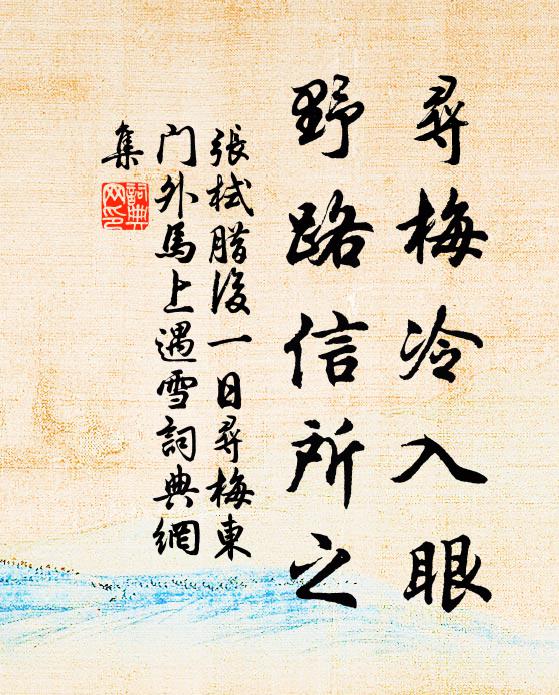 尋梅冷入眼
野路信所之
張栻腊後一日尋梅東
门外馬上遇雪詞典網
集
詞典
网印